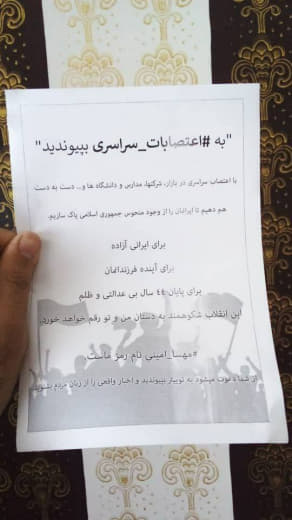 "به #اعتصابات_سراسری بپیوندید"
با اعتصاب سراسری در بازار، شرکتها، مدارس و دانشگاه ها و... دست به دست
هم دهیم تا ایرانمان را از وجود منحوس جمهوری اسلامی پاک سازیم.
برای ایرانی آزاده
برای آینده فرزندانمان
برای پایان ٤٤ سال بی عدالتی و ظلم
این انقلاب شکوهمند به دستان من و تو رقم خواهد خورد.
#مهسا_امینی نام رمز ماست.
از شما دعوت میشود به توییتر بپیوندید و اخبار واقعی را از زبان مردم بشنوید